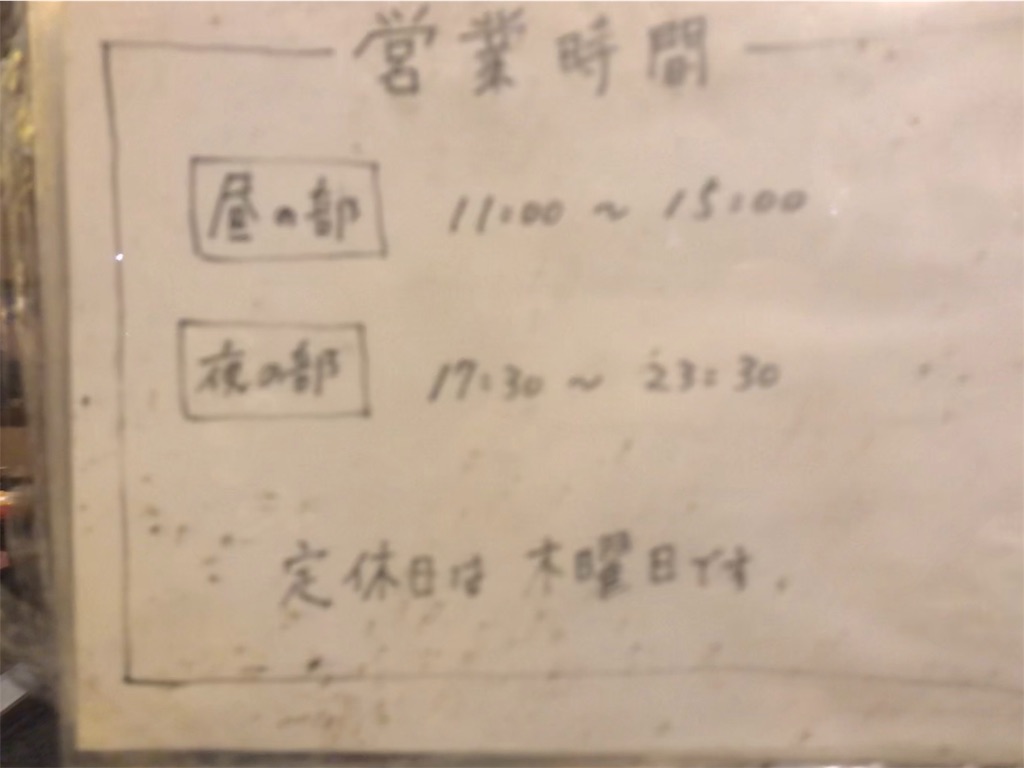 営業時間
昼の部 11:00 ~ 15:00
夜の部 17:30 ~ 23:30
定休日は 木曜日です.